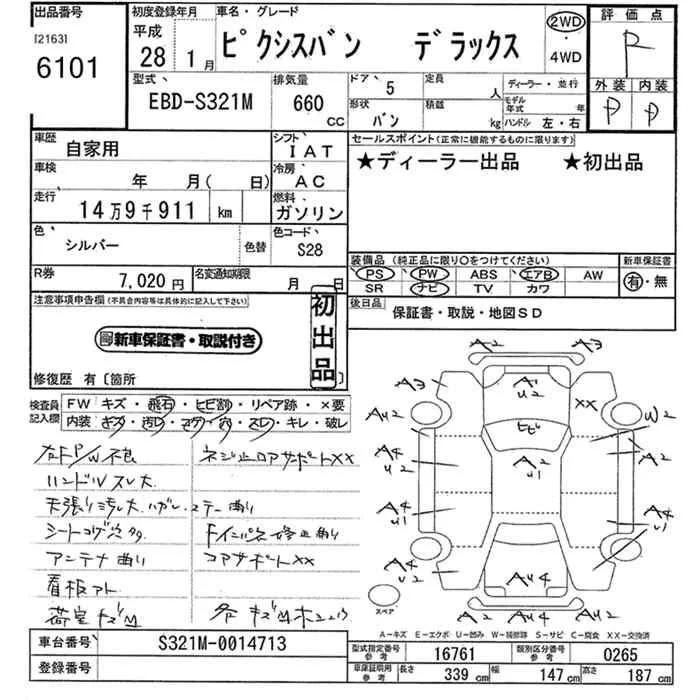 出品番号
[2163]
6101
初度登録年月
平成
28 1月
車名・グレード
ピクシスバン デラックス
2WD
・
4WD
評価点
R
外装 内装
D D
型式
EBD-S321M
排気量
660
CC
ドア
5
形状
バン
定員
人
積載
kg
ディーラー・並行
モデル年式 年
ハンドル 左・右
車歴
自家用
車検
年 月( 日)
走行
14万9千911 km
色
シルバー
色替
シフト
IAT
冷房
AC
燃料
ガソリン
色コード
S28
R券
7,020円
名変通知期限
月 日
セールスポイント(正常に機能するものに限ります)
★ディーラー出品 ★初出品
装備品(純正品に限り○をつけてください)
PS PW ABS エアB AW
SR ナビ TV カワ
新車保証書
有・無
後日品
保証書・取説・地図SD
注意事項申告欄(不具合内容等は具体的に記入して下さい)
新車保証書・取説付き
初出品
修復歴 有〔箇所
検査員記入欄
FW キズ・飛石・ヒビ割・リペア跡・×要
内装 キズ・汚レ・コゲ・穴・スレ・キレ・破レ
ハンドルスレ大
シートコゲ穴
アンテナ曲り
コアサポートXX
看板アト
荷室キズM
A3 A2 A2 A3
A1
U2
AU2 XX W2
ヒビ
A4
U2
A2
U1
A2
A4
U1
A4
U1
A4
U2
AU4
A2 AU4 A2
スペア
A−キズ E−エクボ U−凹み W−補修跡 S−サビ C−腐食 XX−交換済
車台番号
S321M-0014713
登録番号
型式指定番号
参考
16761
類別区分番号
参考
0265
車庫証明用
参考
長さ 339 cm 幅 147 cm 高さ 187 cm